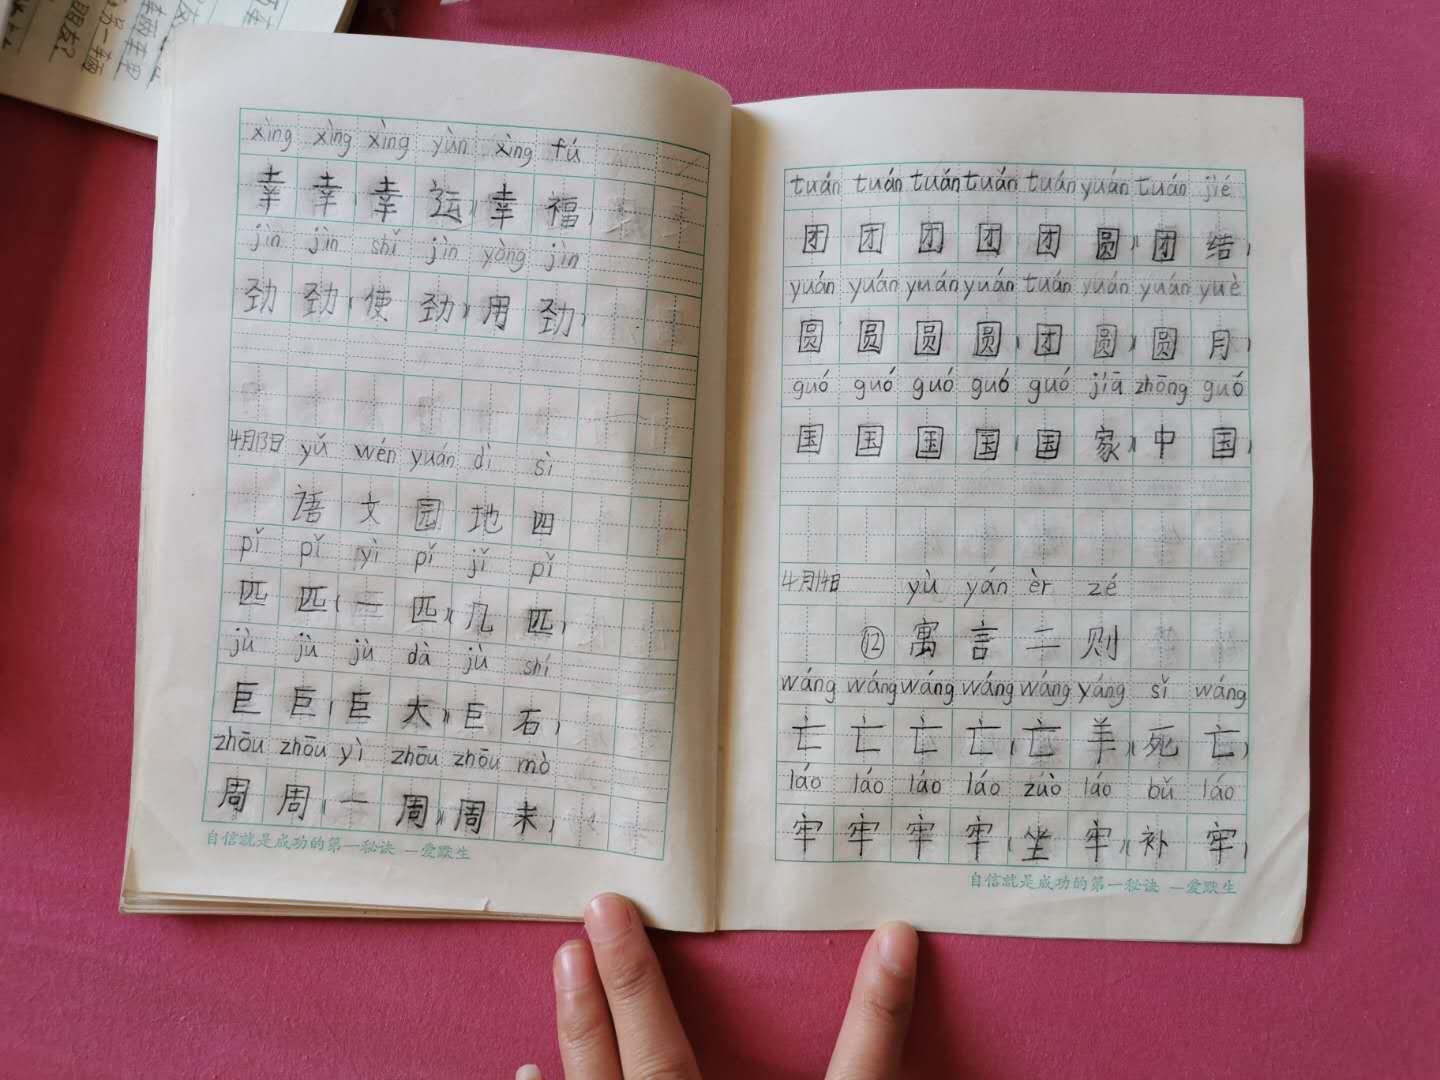 xìng xìng xìng yùn xìng fú
幸 幸(幸 运)(幸 福)
jìn jìn shǐ jìn yòng jìn
劲 劲(使 劲)(用 劲)
4月13日 yǔ wén yuán dì sì
语 文 园 地 四
pǐ pǐ yì pǐ jǐ pǐ
匹 匹(一 匹)(几 匹)
jù jù jù dà jù shí
巨 巨(巨 大)(巨 石)
zhōu zhōu yì zhōu zhōu mò
周 周(一 周)(周 末)
自信就是成功的第一秘诀 —爱默生
tuán tuán tuán tuán tuán yuán tuán jié
团 团 团 团(团 圆)(团 结)
yuán yuán yuán yuán tuán yuán yuán yuè
圆 圆 圆 圆(团 圆)(圆 月)
guó guó guó guó guó jiā zhōng guó
国 国 国 国(国 家)(中 国)
4月14日 yù yán èr zé
⑫ 寓 言 二 则
wáng wáng wáng wáng wáng yáng sǐ wáng
亡 亡 亡 亡(亡 羊)(死 亡)
láo láo láo láo zuò láo bǔ láo
牢 牢 牢 牢(坐 牢)(补 牢)
自信就是成功的第一秘诀 —爱默生